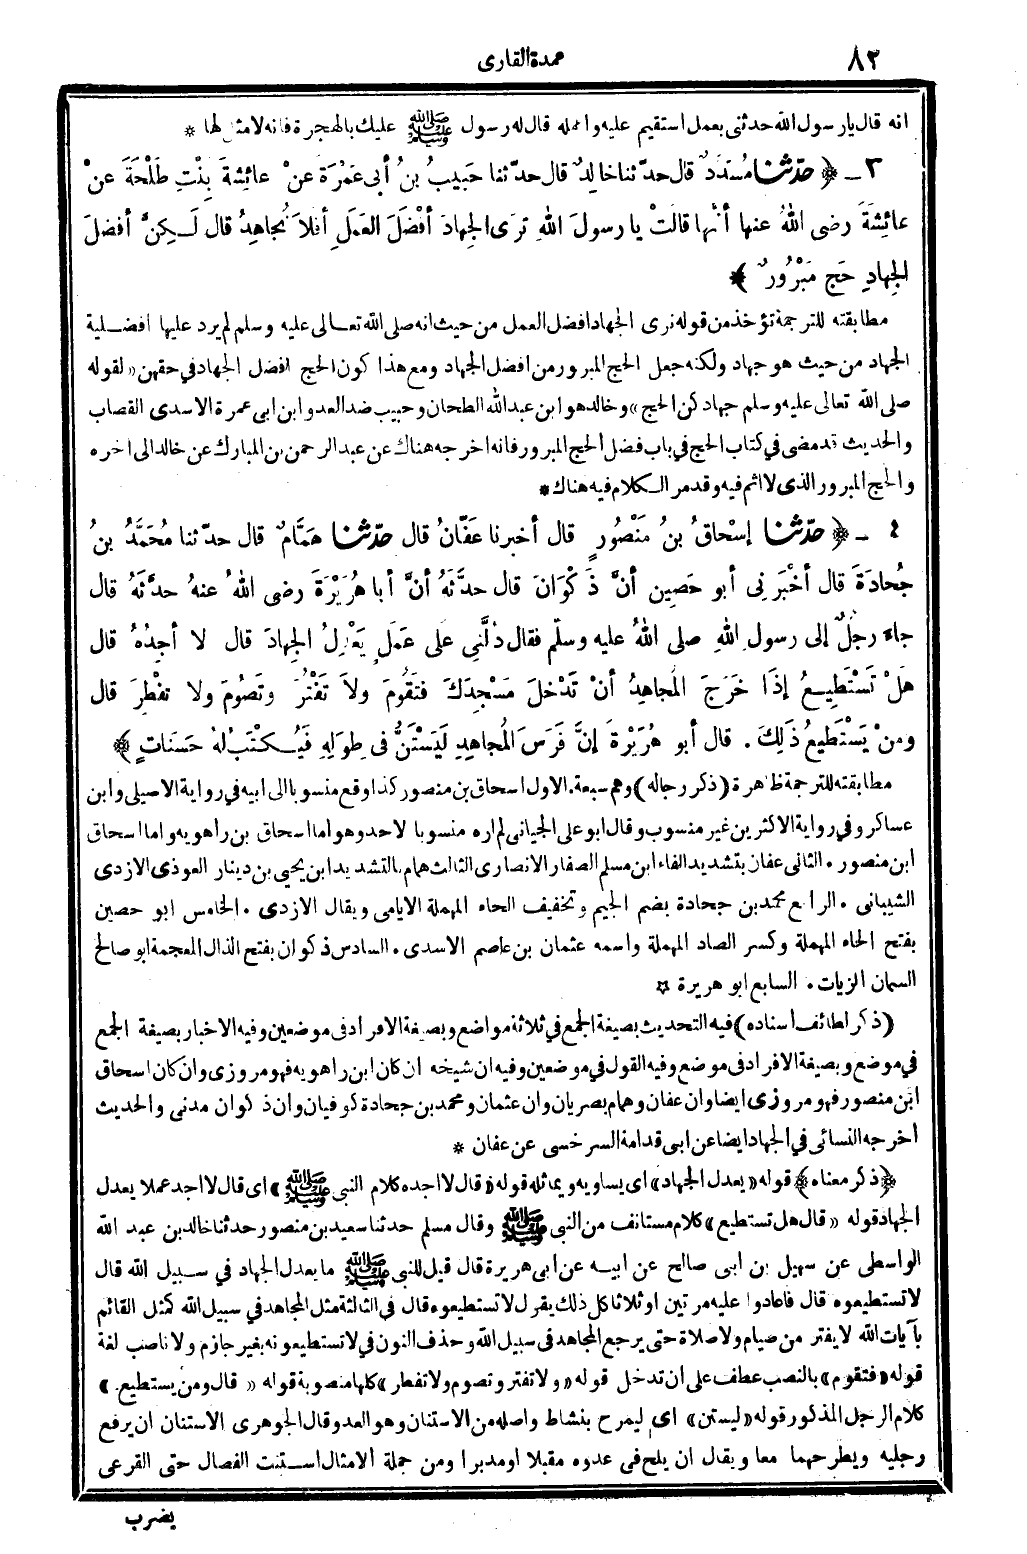 ٨٢
عمدة القارى
انه قال يارسول الله حدثنى بعمل استقيم عليه واعمله قال له رسول ﷺ عليك بالهجرة فانه لا مثل لها *
٣ ـ ﴿ حدّثنا مُسَدَّدٌ قال حدّثنا خالِدٌ قال حدّثنا حَبِيبُ بنُ أبى عَمْرَةَ عنْ عائِشَةَ بِنْتِ طَلْحَةَ عنْ
عائِشَةَ رضى اللهُ عنها أنَّها قالَتْ يا رسولَ اللهِ تَرَى الجِهادَ أفْضَلَ العَمَلِ أفَلاَ نُجاهِدُ قال لَـكِنَّ أفضلَ
الجِهادِ حَج مَبْرُورٌ ﴾
مطابقته للترجمة تؤخذ من قوله نرى الجهاد افضل العمل من حيث انه صلى الله تعـالى عليه وسلم لم يرد عليها افضـلية
الجهاد من حيث هو جهاد ولكنه جعل الحج المبرور من افضل الجهاد ومع هذا كون الحج افضل الجهاد في حقهن « لقوله
صلى الله تعالى عليه وسلم جهادكن الحج » وخالد هو ابن عبد الله الطحان وحبيب ضد العدو ابن ابى عمرة الاسدى القصاب
والحديث قد مضى في كتاب الحج في باب فضل الحج المبرور فانه اخرجه هناك عن عبد الرحمن بن المبارك عن خالد الى اخره
والحج المبرور الذى لا اثم فيه وقد مر الـكلام فيه هناك *
٤ ـ ﴿ حدّثنا إسْحاقُ بنُ مَنْصُورٍ قال أخبرنا عَفَّانُ قال حدّثنا هَمَّامٌ قال حدّثنا مُحَمَّدُ بنُ
جُحادَةَ قال أخْبَرَنِى أبو حَصِين أنَّ ذَكْوَانَ قال حدَّثَهُ أنَّ أبا هُرَيْرَةَ رضى اللهُ عنهُ حدّثَهُ قال
جاءَ رجُلٌ إلى رسولِ اللهِ صلى اللهُ عليه وسلّم فقال دُلَّنِى على عَمَلٍ يَعْدِلُ الجِهادَ قال لا أجِدُهُ قال
هَلْ تَسْتَطِيـعُ إذَا خَرَجَ المُجاهِدُ أنْ تَدْخُلَ مَسْجِدَكَ فتَقُومَ ولاَ تَفْتُرَ وتَصُومَ ولا تفْطِرَ قال
ومنْ يَسْتَطِيعُ ذَلِكَ . قال أبو هُرَيْرةَ إنَّ فَرَسَ المُجاهِدِ لَيَسْتَنُّ فى طِوَلِهِ فَيُـكْتَبُ لهُ حَسَنَاتٍ ﴾
مطابقته للترجمة ظاهرة ( ذكر رجاله ) وهم سبعة . الاول اسحاق بن منصور كذا وقع منسوبا الى ابيه في رواية الاصيلى وابن
عساكر وفي رواية الاكثرين غير منسوب وقال ابو على الجيانى لم اره منسوبا لاحد وهو اما اسحاق بن راهويه واما اسحاق
ابن منصور . الثانى عفان بتشديد الفاء ابن مسلم الصفار الانصارى الثالث همام بالتشديد ابن يحيى بن دينار العوذى الازدى
الشيبانى . الرابع محمد بن جحادة بضم الجيم وتخفيف الحاء المهملة الايامى ويقال الازدى . الخامس ابو حصين
بفتح الحاء المهملة وكسر الصاد المهملة واسمه عثمان بن عاصم الاسدى . السادس ذكوان بفتح الذال المعجمة ابو صالح
السمان الزيات . السابع ابو هريرة *
( ذكر لطائف اسناده ) فيه التحديث بصيغة الجمع في ثلاثة مواضع وبصيغة الافراد فى موضعين وفيه الاخبار بصيغة الجمع
في موضع وبصيغة الافراد فى موضع وفيه القول في موضعين وفيه ان شيخه ان كان ابن راهويه فهو مروزى وان كان اسحاق
ابن منصور فهو مروزى ايضا وان عفان وهمام بصريان وان عثمان ومحمد بن جحادة كوفيان وان ذكوان مدنى والحديث
اخرجه النسائى في الجهاد ايضا عن ابى قدامة السرخسى عن عفان *
﴿ ذكر معناه ﴾ قوله « يعدل الجهاد » اى يساويه ويماثله قوله « قال لا اجده كلام النبى ﷺ » اى قال لا اجد عملا يعدل
الجهاد قوله « قال هل تستطيع » كلام مستانف من النبى ﷺ وقال مسلم حدثنا سعيد بن منصور حدثنا خالد بن عبد الله
الواسطى عن سهيل بن ابى صالح عن ابيـه عن ابى هريرة قال قيل للنبى ﷺ ما يعدل الجهاد في سـبيل الله قال
لا تستطيعوه قال فاعادوا عليه مرتين او ثلاثا كل ذلك يقول لا تستطيعوه قال فى الثالثة مثل المجاهد في سبيل الله كمثل القائم
بآيات الله لا يفتر من صيام ولا صلاة حتى يرجع المجاهد فى سبيل الله وحذف النون في لا تستطيعونه بغير جازم ولا ناصب لغة
قوله « فتقوم » بالنصب عطف على ان تدخل قوله « ولا تفتر وتصوم ولا تفطر » كلها منصوبة قوله « قال ومن يستطيع . »
كلام الرجل المذكور قوله « ليستن » اى ليمرح بنشاط واصله من الاستنان وهو العدو وقال الجوهرى الاستنان ان يرفع
رجليه ويطرحهما معا ويقال ان يلح فى عدوه مقبلا او مدبرا ومن جملة الامثال اسـتنت الفصال حتى القرعى
يضرب